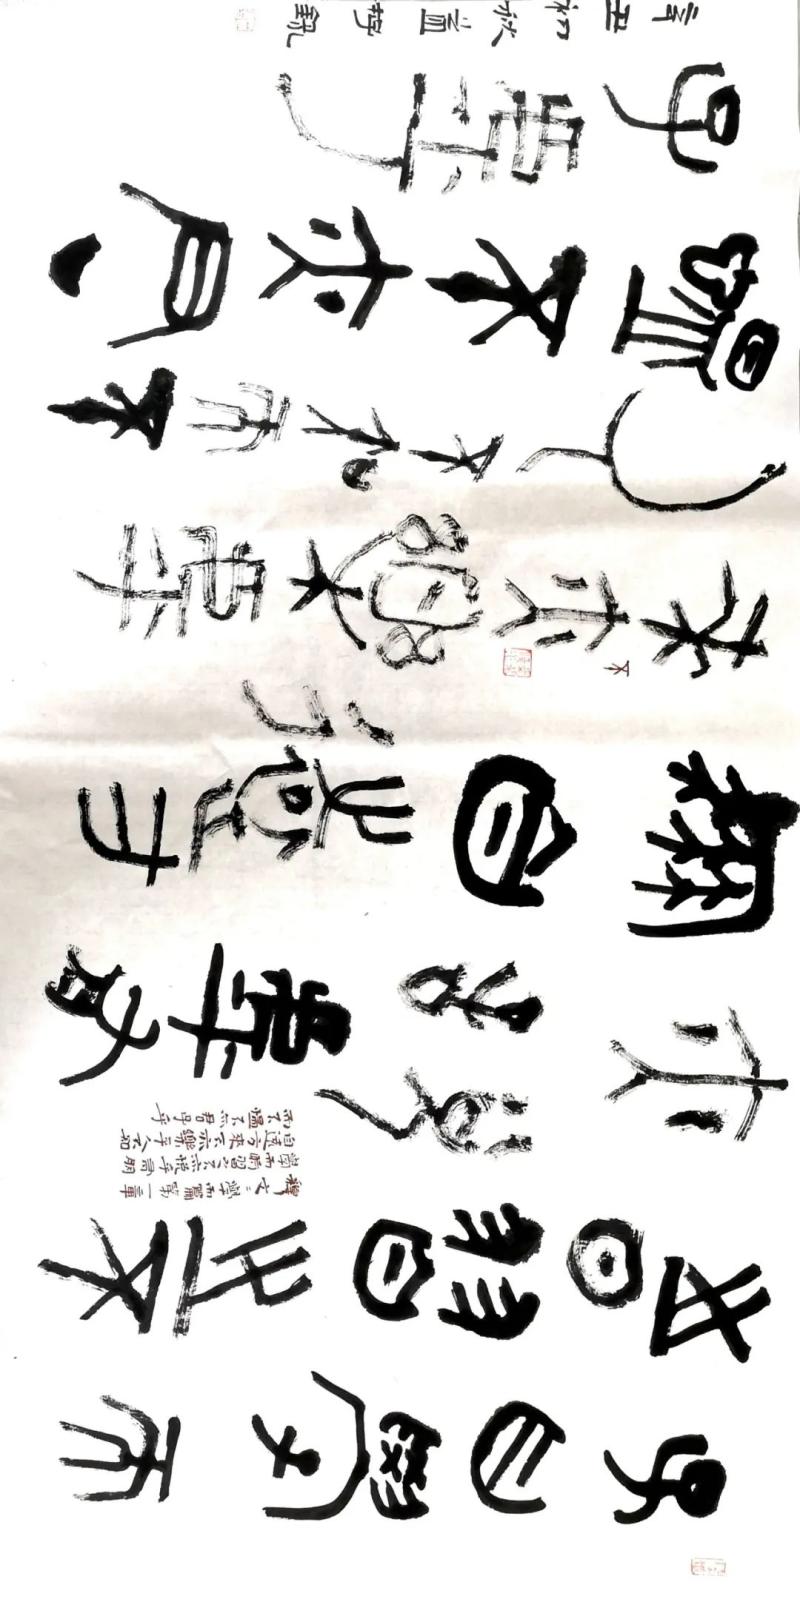 子曰學而
時習之不
亦說乎有
朋自遠方
來不亦樂乎
人不知而不
慍不亦君
子乎
辛丑初秋
釋文：學而篇第一章
學而時習之不亦悅乎有朋
自遠方來不亦樂乎人不知
而不慍不亦君子乎